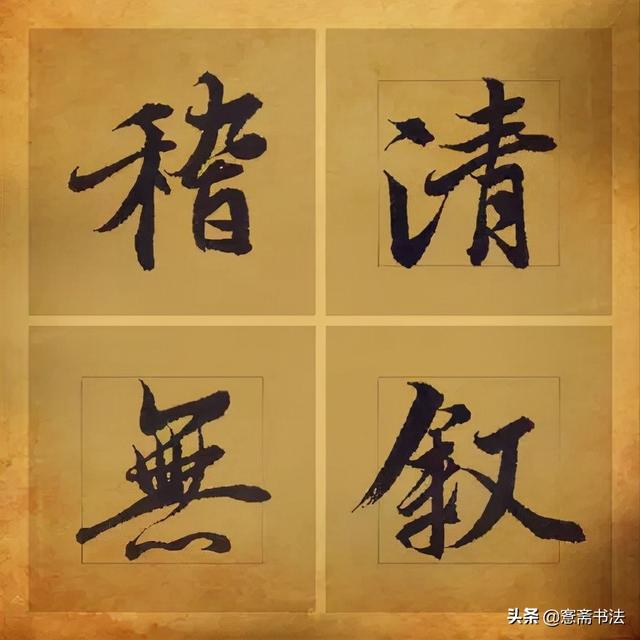 稽清
無叙
头条 @窓斋书法